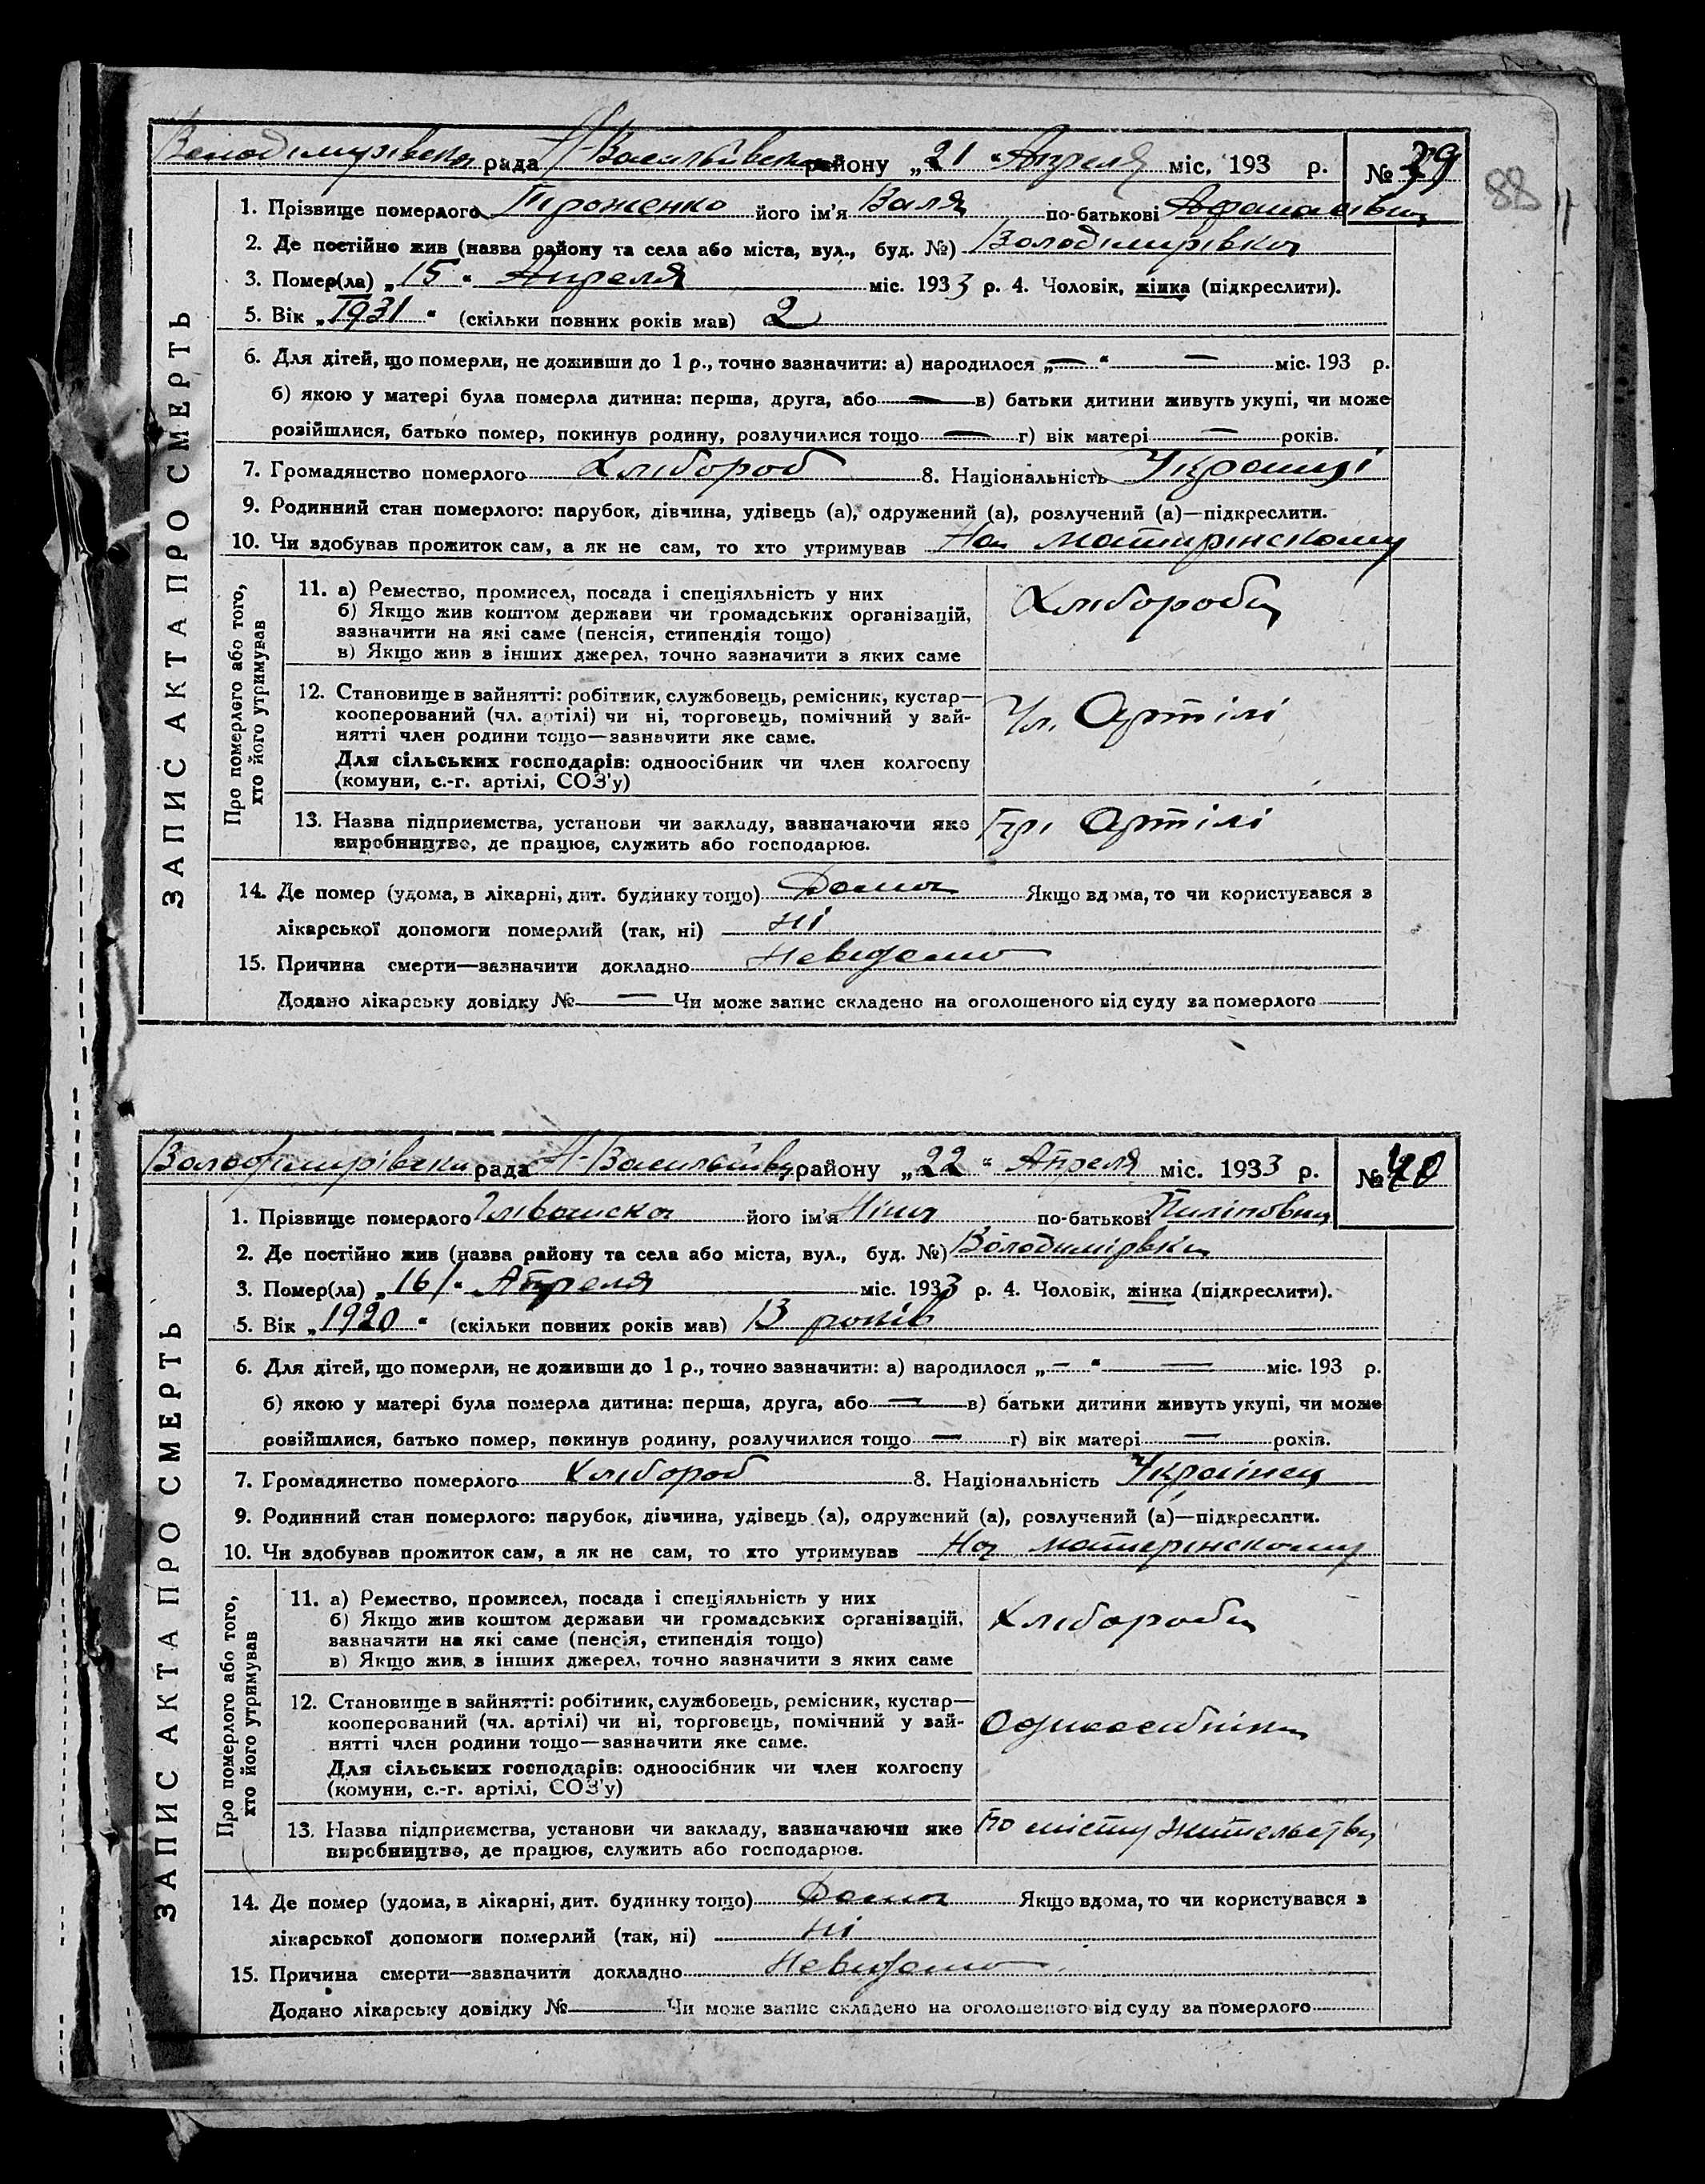 Володімирівська рада Н-Васильївська району „21“ Апреля міс. 193 р. № 39
88
ЗАПИС АКТА ПРО СМЕРТЬ
1. Прізвище померлого його ім'я Валя по-батькові Афанасівна
2. Де постійно жив (назва району та села або міста, вул., буд. №) Володімирівка
3. Помер(ла) „15“ Апреля міс. 1933 р. 4. Чоловік, жінка (підкреслити).
5. Вік „1931“ (скільки повних років мав) 2
6. Для дітей, що померли, не доживши до 1 р., точно зазначити: а) народилося „—“ — міс. 193 р.
б) якою у матері була померла дитина: перша, друга, або — в) батьки дитини живуть укупі, чи може
розійшлися, батько помер, покинув родину, розлучилися тощо — г) вік матері — років.
7. Громадянство померлого Хлібороб 8. Національність Українці
9. Родинний стан померлого: парубок, дівчина, удівець (а), одружений (а), розлучений (а)—підкреслити.
10. Чи здобував прожиток сам, а як не сам, то хто утримував На матирінскому
Про померлого або того,
хто його утримував
11. а) Ремество, промисел, посада і спеціяльність у них
б) Якщо жив коштом держави чи громадських організацій,
зазначити на які саме (пенсія, стипендія тощо)
в) Якщо жив з інших джерел, точно зазначити з яких саме
Хлібороба
12. Становище в зайнятті: робітник, службовець, ремісник, кустар—
кооперований (чл. артілі) чи ні, торговець, помічний у зай-
нятті член родини тощо—зазначити яке саме.
Для сільських господарів: одноосібник чи член колгоспу
(комуни, с.-г. артілі, СОЗ'у)
Чл. Артілі
13. Назва підприємства, установи чи закладу, зазначаючи яке
виробництво, де працює, служить або господарює.
При Артілі
14. Де помер (удома, в лікарні, дит. будинку тощо) Дома Якщо вдома, то чи користувався з
лікарської допомоги померлий (так, ні) ні
15. Причина смерти—зазначити докладно Невидомо
Додано лікарську довідку № — Чи може запис складено на оголошеного від суду за померлого
Володимирівська рада Н-Васильївськ району „22“ Апреля міс. 1933 р. № 40
ЗАПИС АКТА ПРО СМЕРТЬ
1. Прізвище померлого його ім'я Ніна по-батькові Пиліповна
2. Де постійно жив (назва району та села або міста, вул., буд. №) Володимірвка
3. Помер(ла) „16“ Апреля міс. 1933 р. 4. Чоловік, жінка (підкреслити).
5. Вік „1920“ (скільки повних років мав) 13 років
6. Для дітей, що померли, не доживши до 1 р., точно зазначити: а) народилося „—“ — міс. 193 р.
б) якою у матері була померла дитина: перша, друга, або — в) батьки дитини живуть укупі, чи може
розійшлися, батько помер, покинув родину, розлучилися тощо — г) вік матері — років.
7. Громадянство померлого Хлібороб 8. Національність Українец
9. Родинний стан померлого: парубок, дівчина, удівець (а), одружений (а), розлучений (а)—підкреслити.
10. Чи здобував прожиток сам, а як не сам, то хто утримував На матерінскому
Про померлого або того,
хто його утримував
11. а) Ремество, промисел, посада і спеціяльність у них
б) Якщо жив коштом держави чи громадських організацій,
зазначити на які саме (пенсія, стипендія тощо)
в) Якщо жив з інших джерел, точно зазначити з яких саме
Хлібороба
12. Становище в зайнятті: робітник, службовець, ремісник, кустар—
кооперований (чл. артілі) чи ні, торговець, помічний у зай-
нятті член родини тощо—зазначити яке саме.
Для сільських господарів: одноосібник чи член колгоспу
(комуни, с.-г. артілі, СОЗ'у)
Одноосибніка
13. Назва підприємства, установи чи закладу, зазначаючи яке
виробництво, де працює, служить або господарює.
По місту жительства
14. Де помер (удома, в лікарні, дит. будинку тощо) Дома Якщо вдома, то чи користувався з
лікарської допомоги померлий (так, ні) ні
15. Причина смерти—зазначити докладно Невидомо
Додано лікарську довідку № Чи може запис складено на оголошеного від суду за померлого